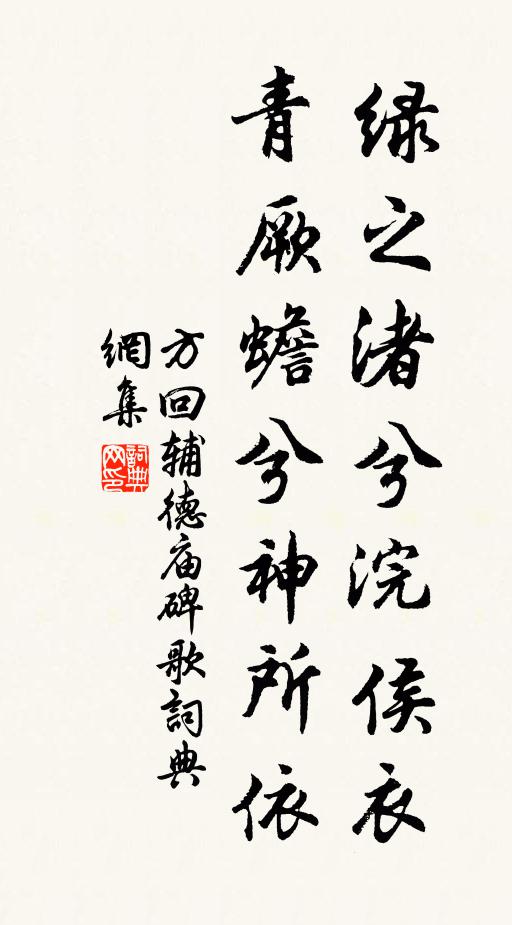 绿之渚兮浣侯衣
青厥蟾兮神所依
方回辅德庙碑歌詞典
網集
詞典
网印